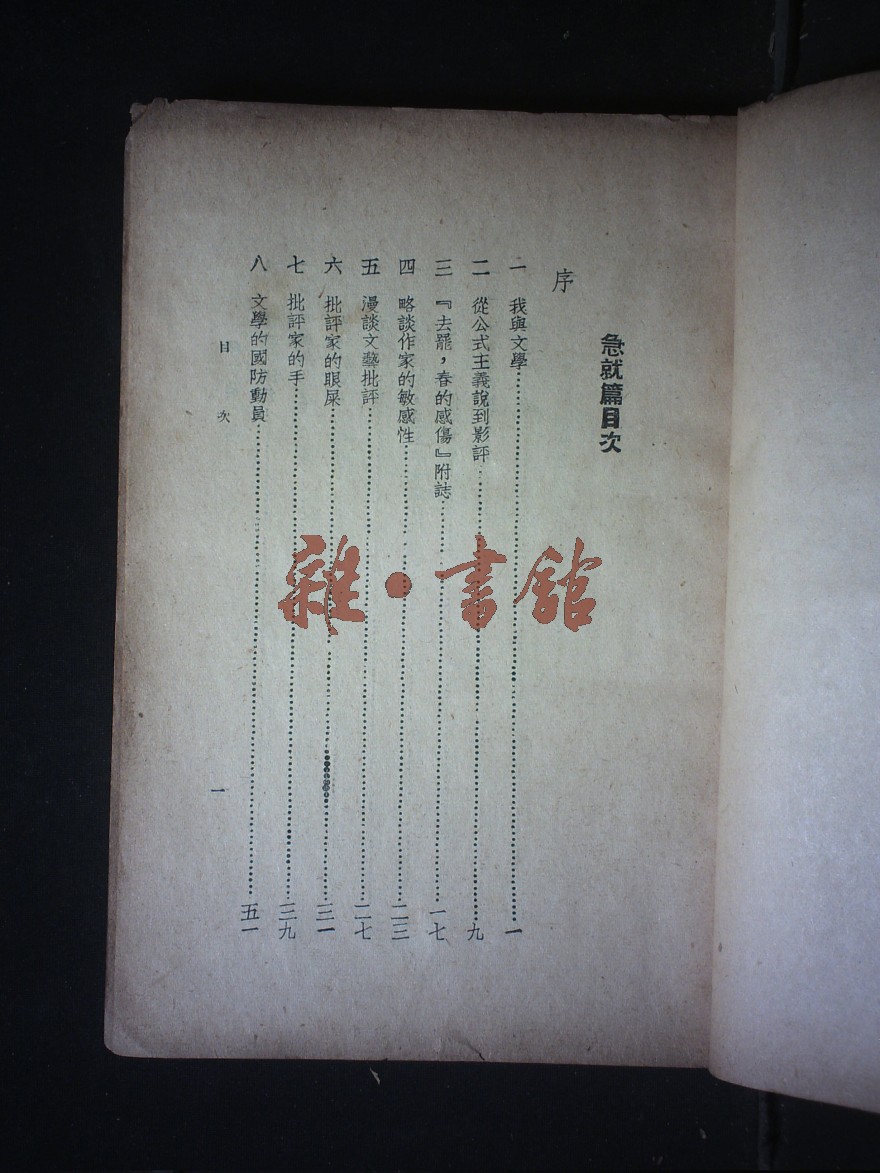 急就篇目次
序
一 我與文學……一
二 從公式主義說到影評……九
三 『去罷，春的感傷』附誌……一七
四 略談作家的敏感性……二三
五 漫談文藝批評……二七
六 批評家的眼屎……三一
七 批評家的手……三九
八 文學的國防動員……五一
目次
一
雜·書館